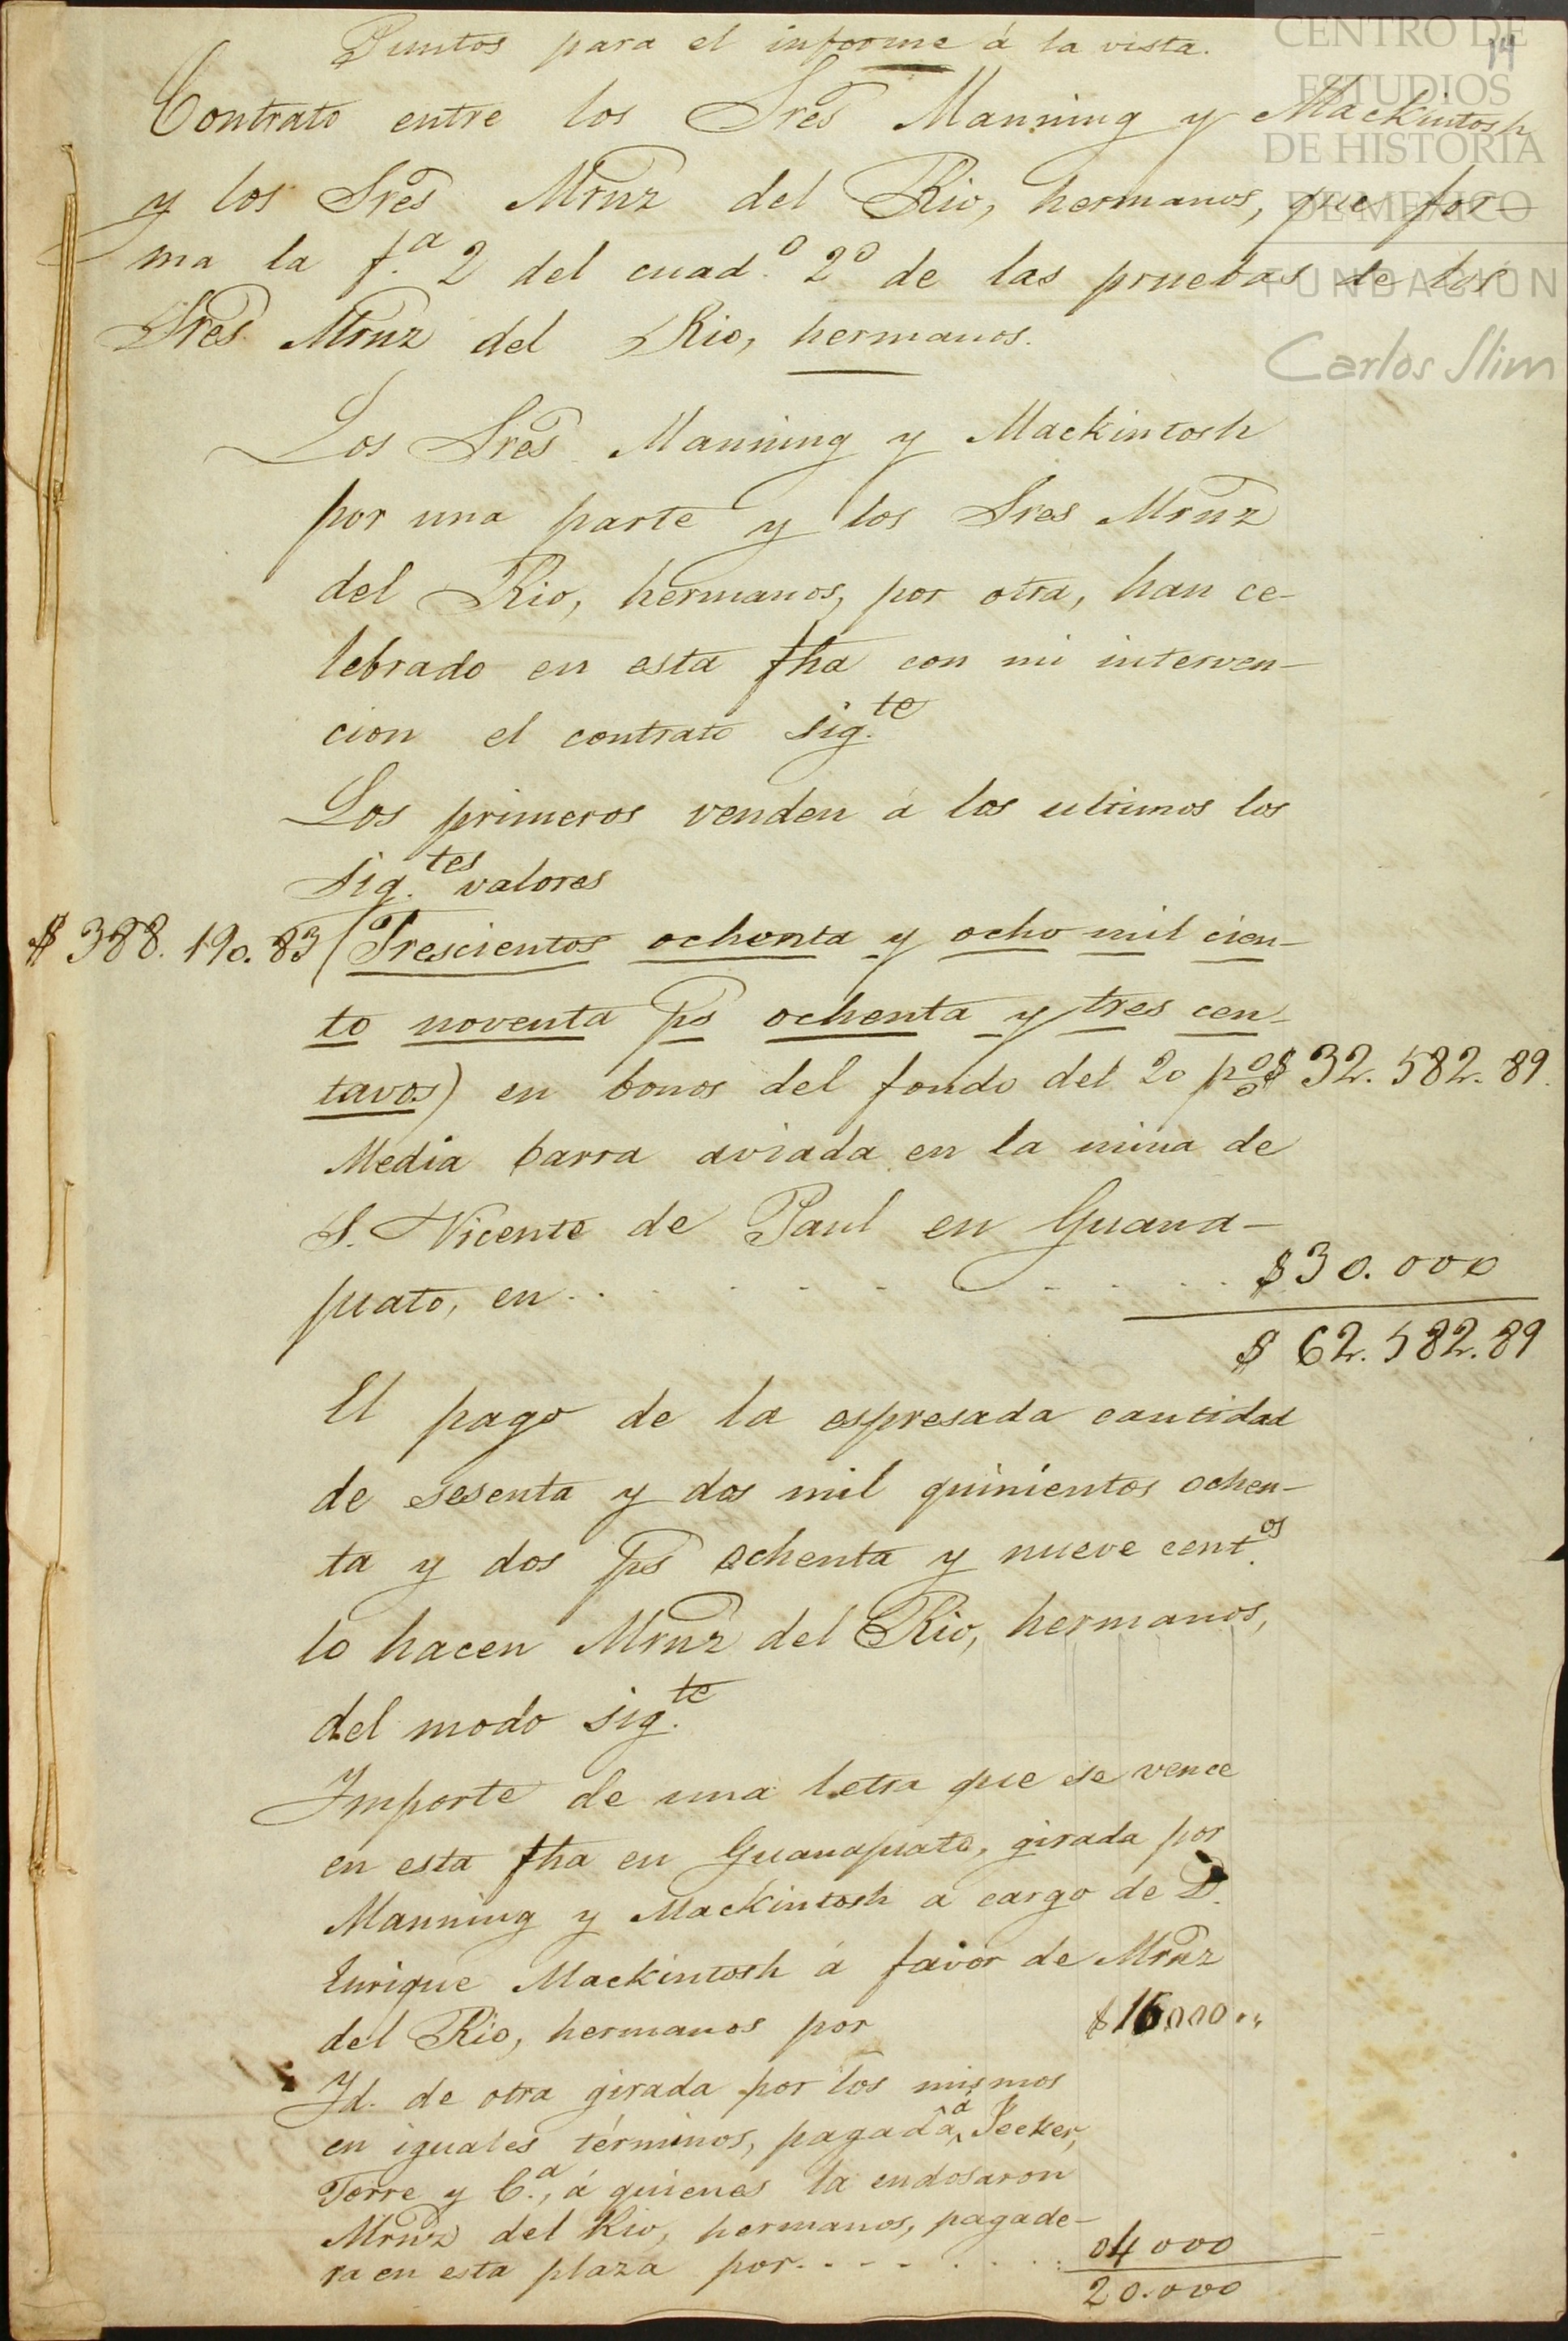 Puntos para el informe á la vista.
14
Contrato entre los Sres Manning y Mackintosh
y los Sres Mrnz del Rio, hermanos, que for-
ma la f.ª 2 del cuad.º 2º de las pruebas de los
Sres Mrnz del Rio, hermanos.
Los Sres Manning y Mackintosh
por una parte y los Sres Mrnz
del Rio, hermanos, por otra, han ce-
lebrado en esta fha con mi interven-
cion el contrato sig.te
Los primeros venden á los ultimos los
sig.tes valores
$ 388.190.83 (Trescientos ochenta y ocho mil cien-
to noventa ps ochenta y tres cen-
tavos) en bonos del fondo del 20 p% $ 32.582.89.
Media barra aviada en la mina de
S. Vicente de Paul en Guana-
juato, en . . . . . . . . $30.000
$ 62.582.89
El pago de la espresada cantidad
de sesenta y dos mil quinientos ochen-
ta y dos ps ochenta y nueve cent.os
lo hacen Mrnz del Rio, hermanos,
del modo sig.te
Importe de una letra que se vence
en esta fha en Guanajuato, girada por
Manning y Mackintosh a cargo de D.
Enrique Mackintosh á favor de Mrnz
del Rio, hermanos por $16.000 ..
Id. de otra girada por los mismos
en iguales términos, pagada á Jecker,
Torre y C.ª, á quienes la endosaron
Mrnz del Rio, hermanos, pagade-
ra en esta plaza por . - - - . . . . : 04 000
20.000
CENTRO DE
ESTUDIOS
DE HISTORIA
DE MEXICO
FUNDACIÓN
Carlos Slim